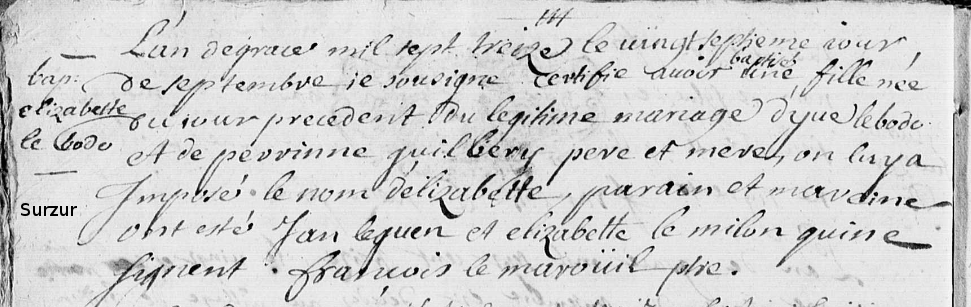 L'an de grace mil sept treize le uingt septieme iour
bap:
elizabette
le bodo
de septembre ie sousigne certifie auoir baptisé une fille née
du iour precedent du legitime mariage d'yue le bodo
et de perrinne guilbery pere et mere, on luy a
Imposé le nom d'élizabette, parain et maraine
Surzur
ont esté Jan le guen et elizabette le milon qui ne
signent . francois le maroüil ptre.